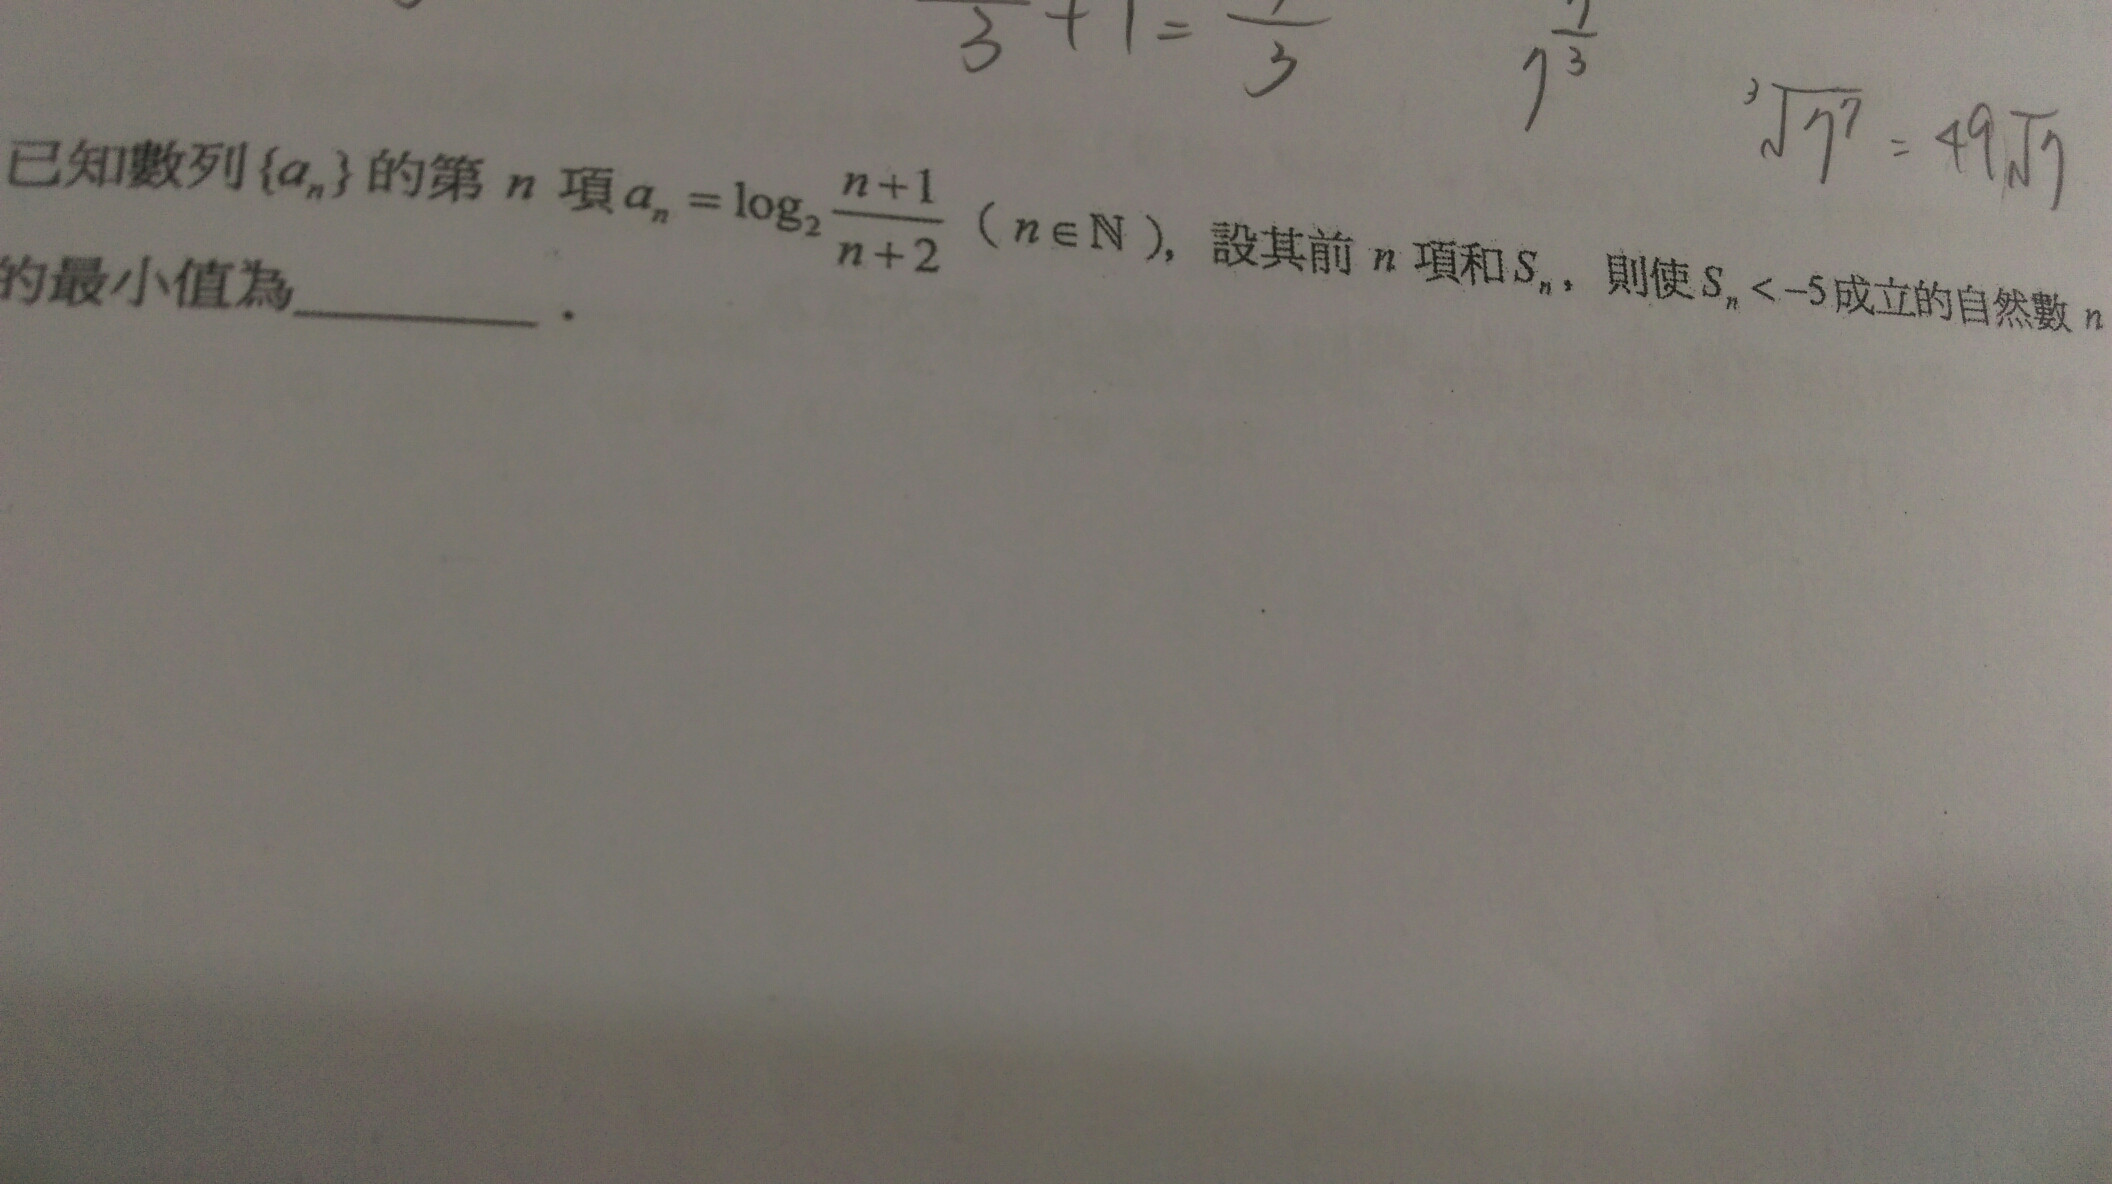 3 + 1 = 7/3
7^{7/3}
∛7⁷ = 49∛7
已知數列{aₙ}的第 n 項 aₙ = log₂ (n+1)/(n+2) ( n∈ℕ ), 設其前 n 項和 Sₙ, 則使 Sₙ < −5 成立的自然數 n
的最小值為________.